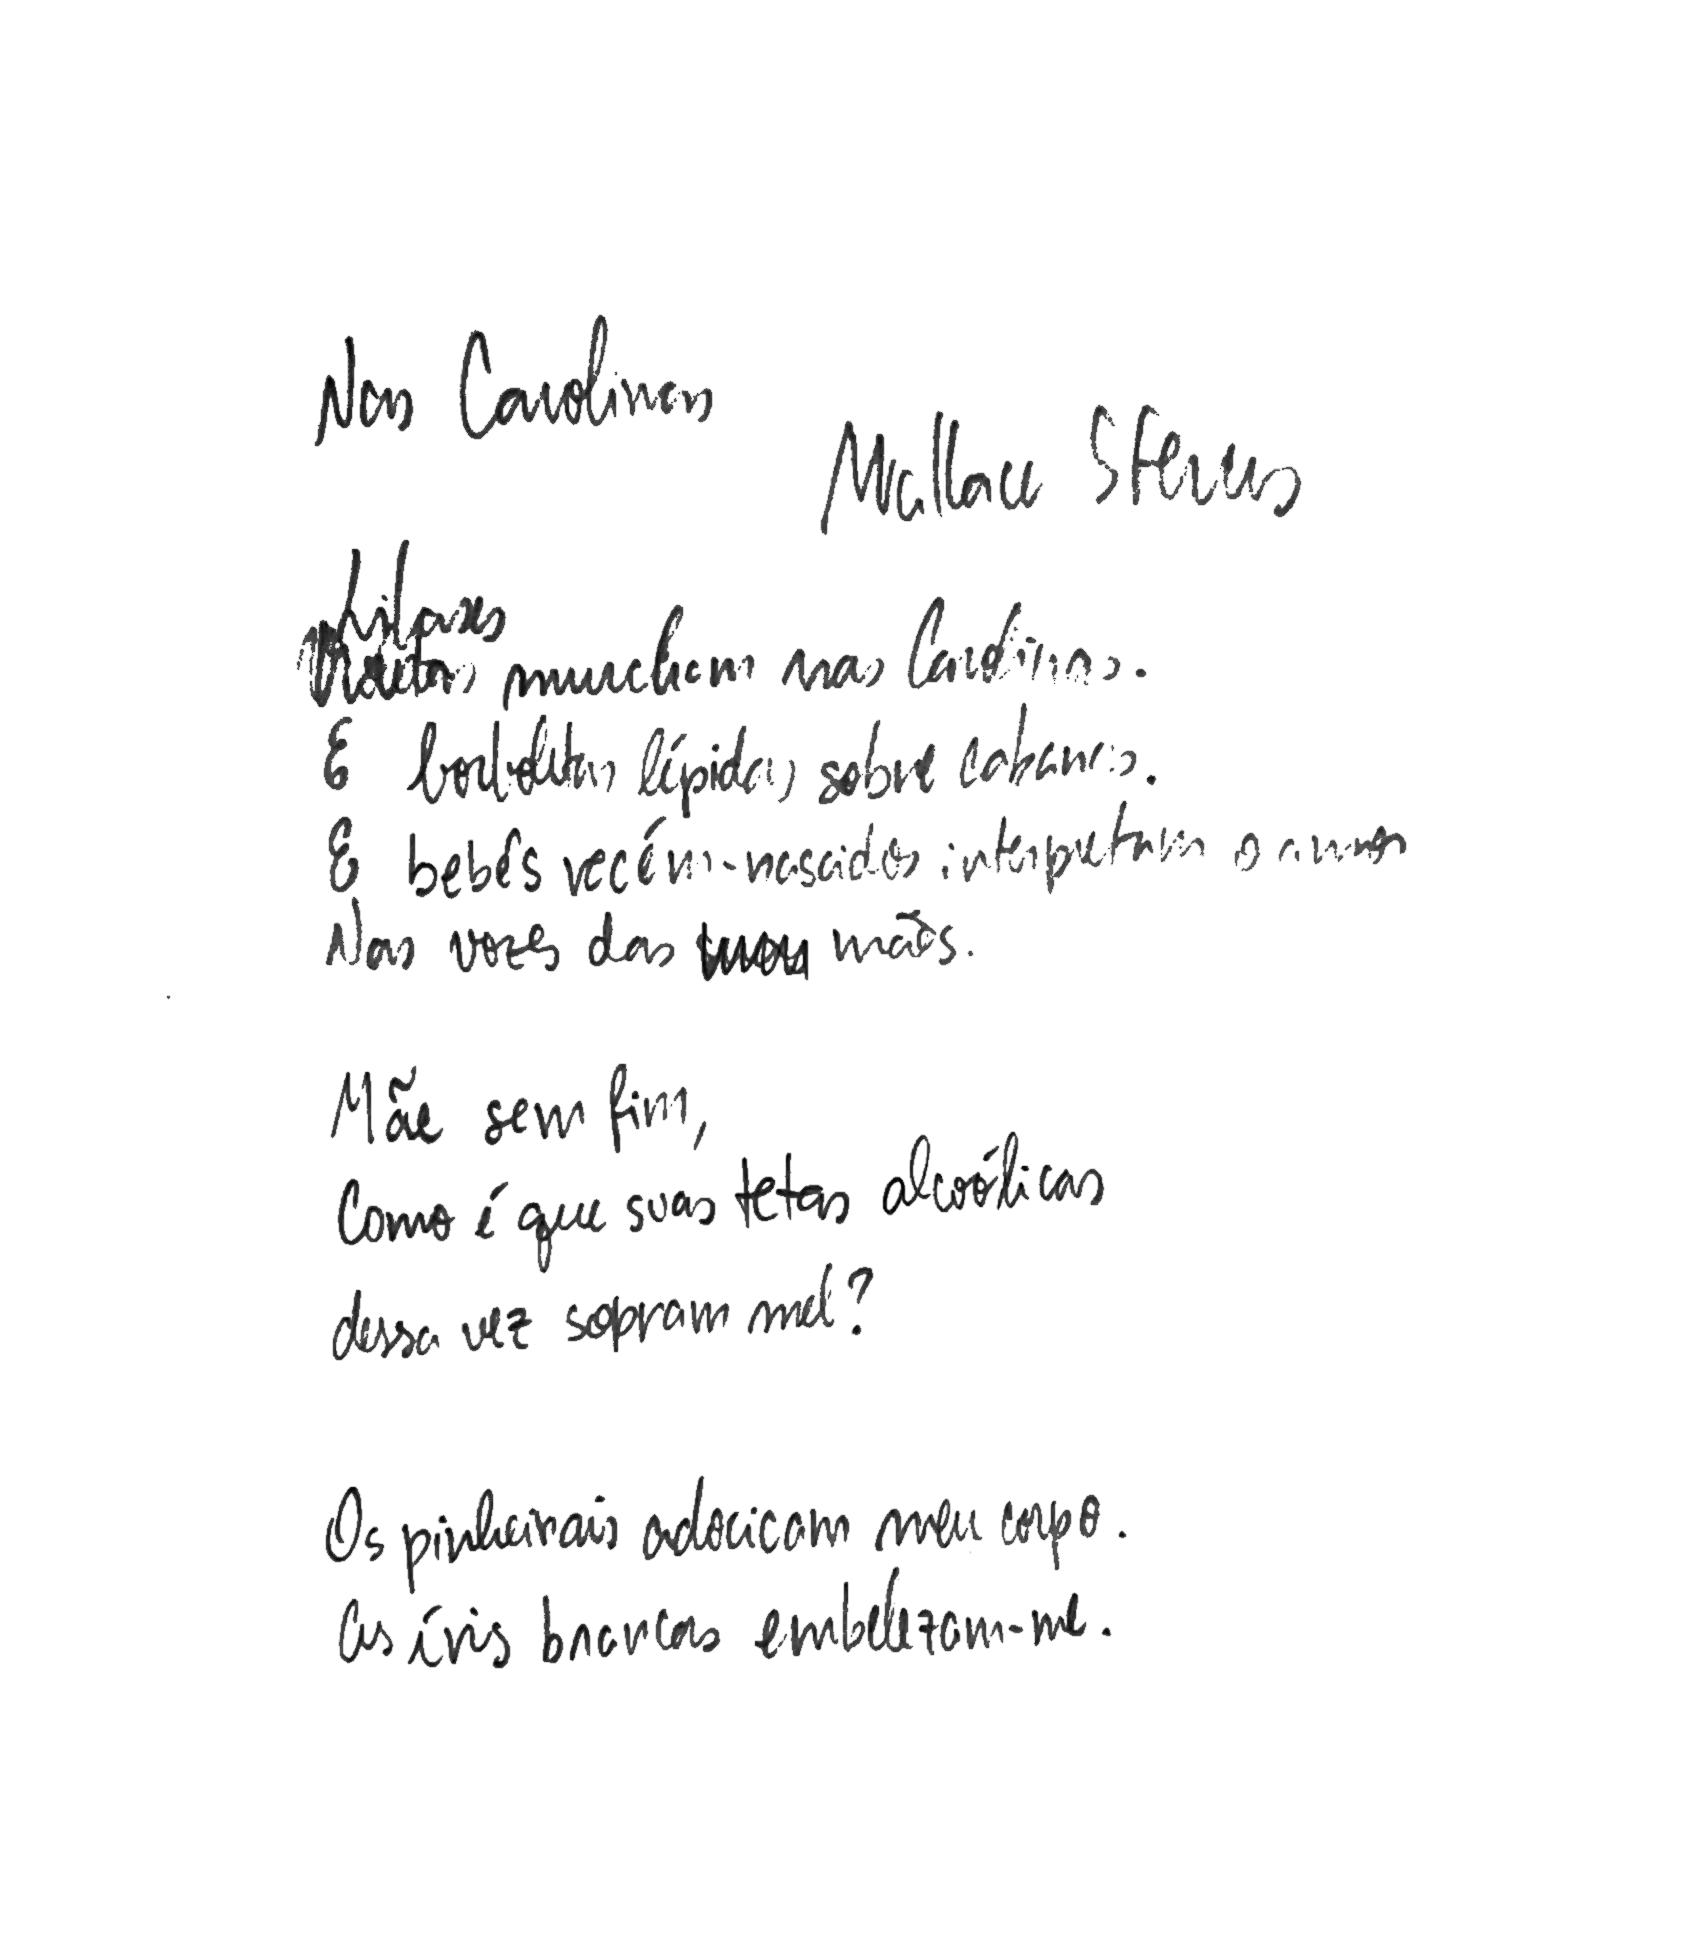 Nas Carolinas
Wallace Stevens
Lilases
Violetas murcham nas Carolinas.
E borboletas lépidas sobre cabanas.
E bebês recém-nascidos interpretam o amor
Nas vozes das mães.
Mãe sem fim,
Como é que suas tetas alcoólicas
dessa vez sopram mel?
Os pinheirais adocicam meu corpo.
As íris brancas embelezam-me.